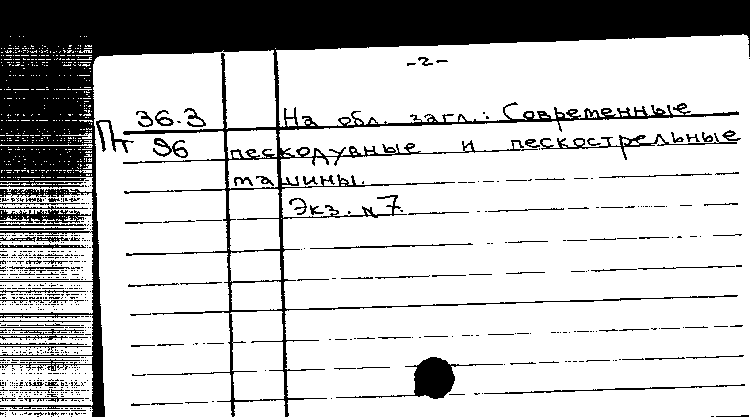 -2-
36.3 На обл. загл.: Современные
Пт 96 пескодувные и пескострельные
машины.
Экз. N 7.